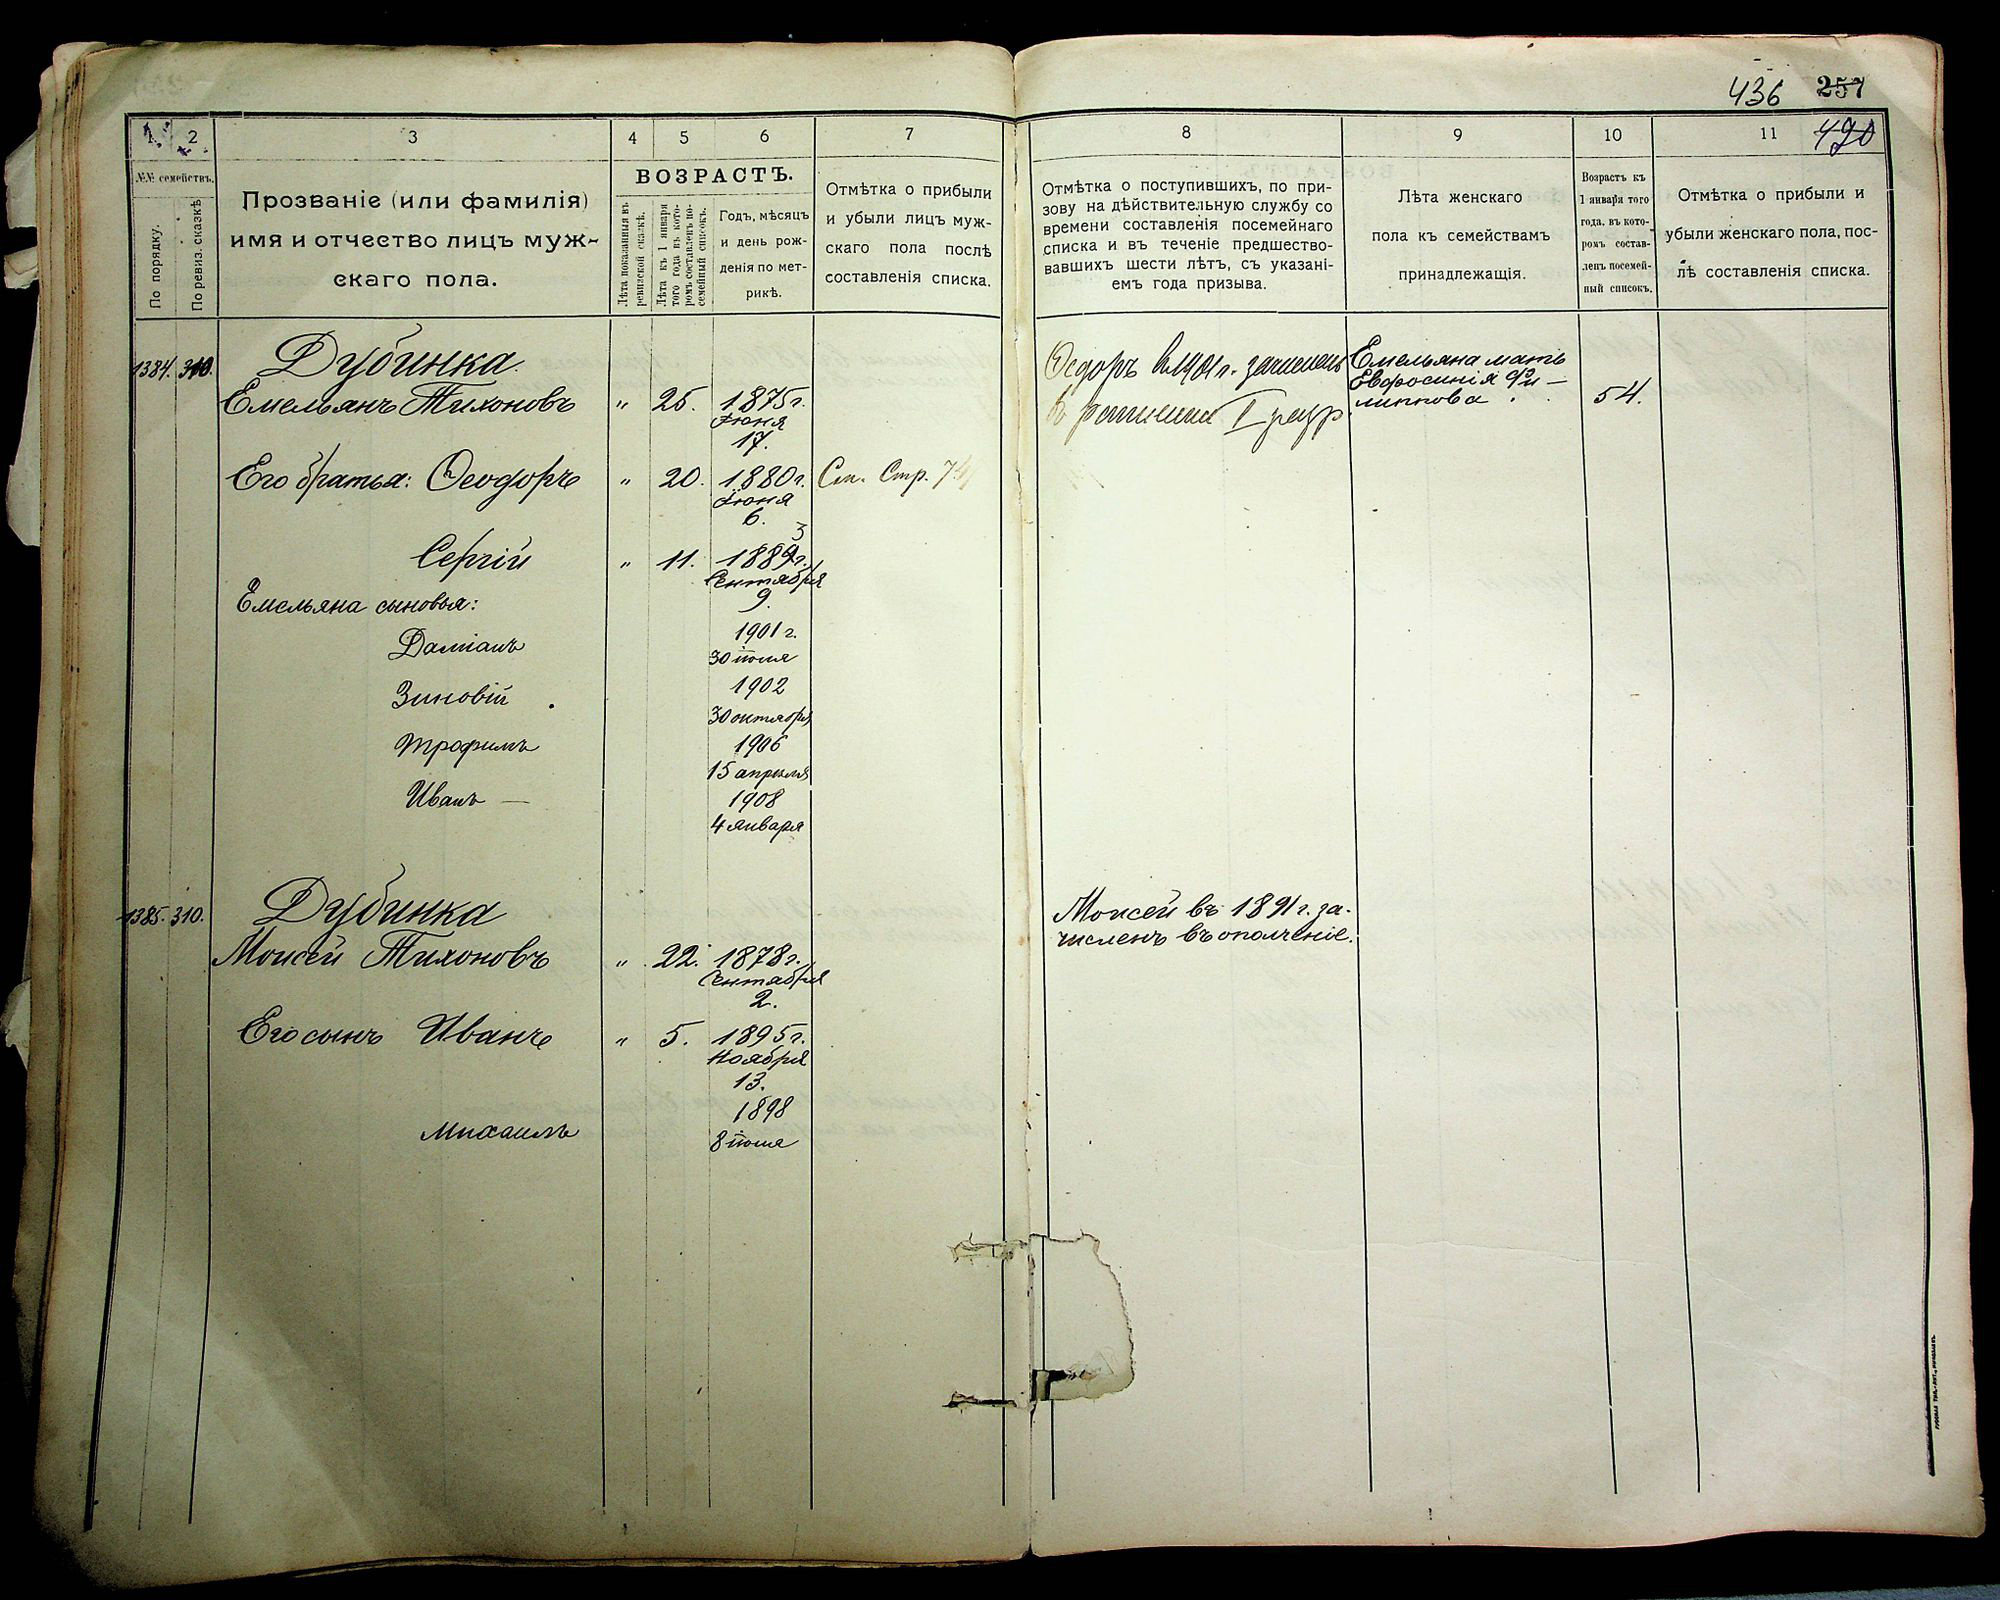 436 257
490
1 2 3 4 5 6 7 8 9 10 11
№№ семействъ.
По порядку.
По ревиз. сказкѣ
Прозваніе (или фамилія)
имя и отчество лицъ муж-
скаго пола.
ВОЗРАСТЪ.
Лѣта показанныя въ
ревизской сказкѣ.
Лѣта къ 1 января
того года въ кото-
ромъ составленъ по-
семейный списокъ.
Годъ, мѣсяцъ
и день рож-
денія по мет-
рикѣ.
Отмѣтка о прибыли
и убыли лицъ муж-
скаго пола послѣ
составленія списка.
Отмѣтка о поступившихъ, по при-
зову на дѣйствительную службу со
времени составленія посемейнаго
списка и въ теченіе предшество-
вавшихъ шести лѣтъ, съ указані-
емъ года призыва.
Лѣта женскаго
пола къ семействамъ
принадлежащія.
Возрастъ къ
1 января того
года, въ кото-
ромъ состав-
ленъ посемей-
ный списокъ.
Отмѣтка о прибыли и
убыли женскаго пола, пос-
лѣ составленія списка.
1384. 310. Дубинка
Емельянъ Тихоновъ " 25. 1875 г.
Іюня
17.
Ѳеодоръ в 1901 г. зачислен
в ратники I разр
Емельяна мать
Евфросинія Фи-
липпова 54.
Его братья: Ѳеодоръ " 20. 1880 г. См. Стр. 74
Іюня
6.
3
Сергій " 11. 1889 г.
Сентября
9.
Емельяна сыновья:
Даміанъ 1901 г.
30 іюня
Зиновій 1902
30 октября
Трофимъ 1906
15 апрѣля
Иванъ — 1908
4 января
1385. 310. Дубинка
Моисей Тихоновъ " 22. 1878 г.
Сентября
2.
Моисей въ 1891 г. за-
численъ въ ополченіе.
Его сынъ Иванъ " 5. 1895 г.
Ноября
13.
1898
Михаилъ 8 іюля